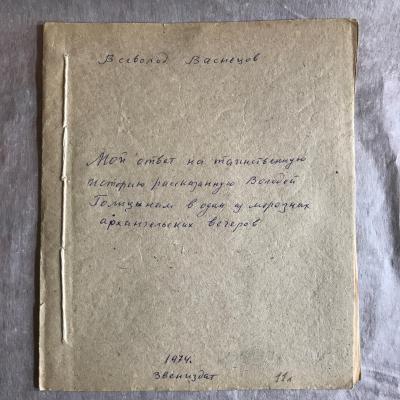 Всеволод Васнецов
Мой ответ на таинственную
историю рассказанную Володей
Голицыным в один из морозных
архангельских вечеров
1974.
Звениздат
11л